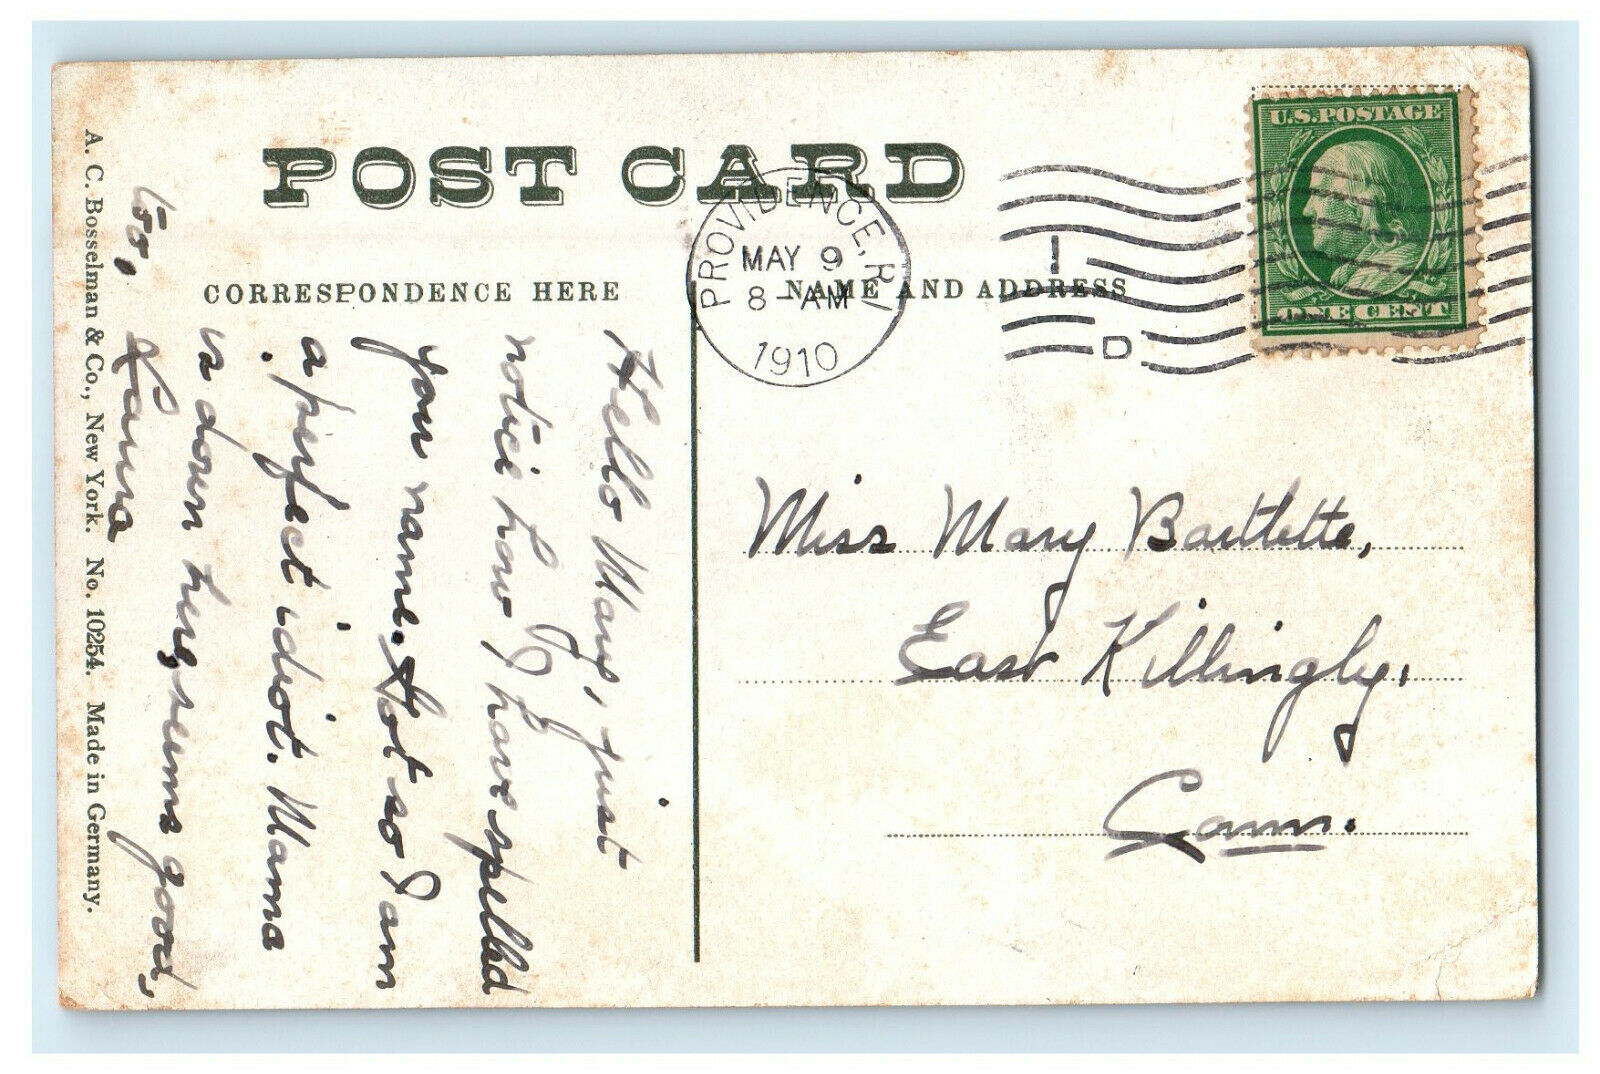 POST CARD
CORRESPONDENCE HERE
NAME AND ADDRESS
A. C. Bosselman & Co., New York. No. 10254. Made in Germany.
PROVIDENCE, R.I.
MAY 9
8-AM
1910
1
D
U.S. POSTAGE
ONE CENT
Miss Mary Bartlette,
East Killingly,
Conn.
Hello Mary, just
notice how I have spelled
you name. Got so I am
a perfect idiot. Mama
is down here, seems good,
too,
Laura